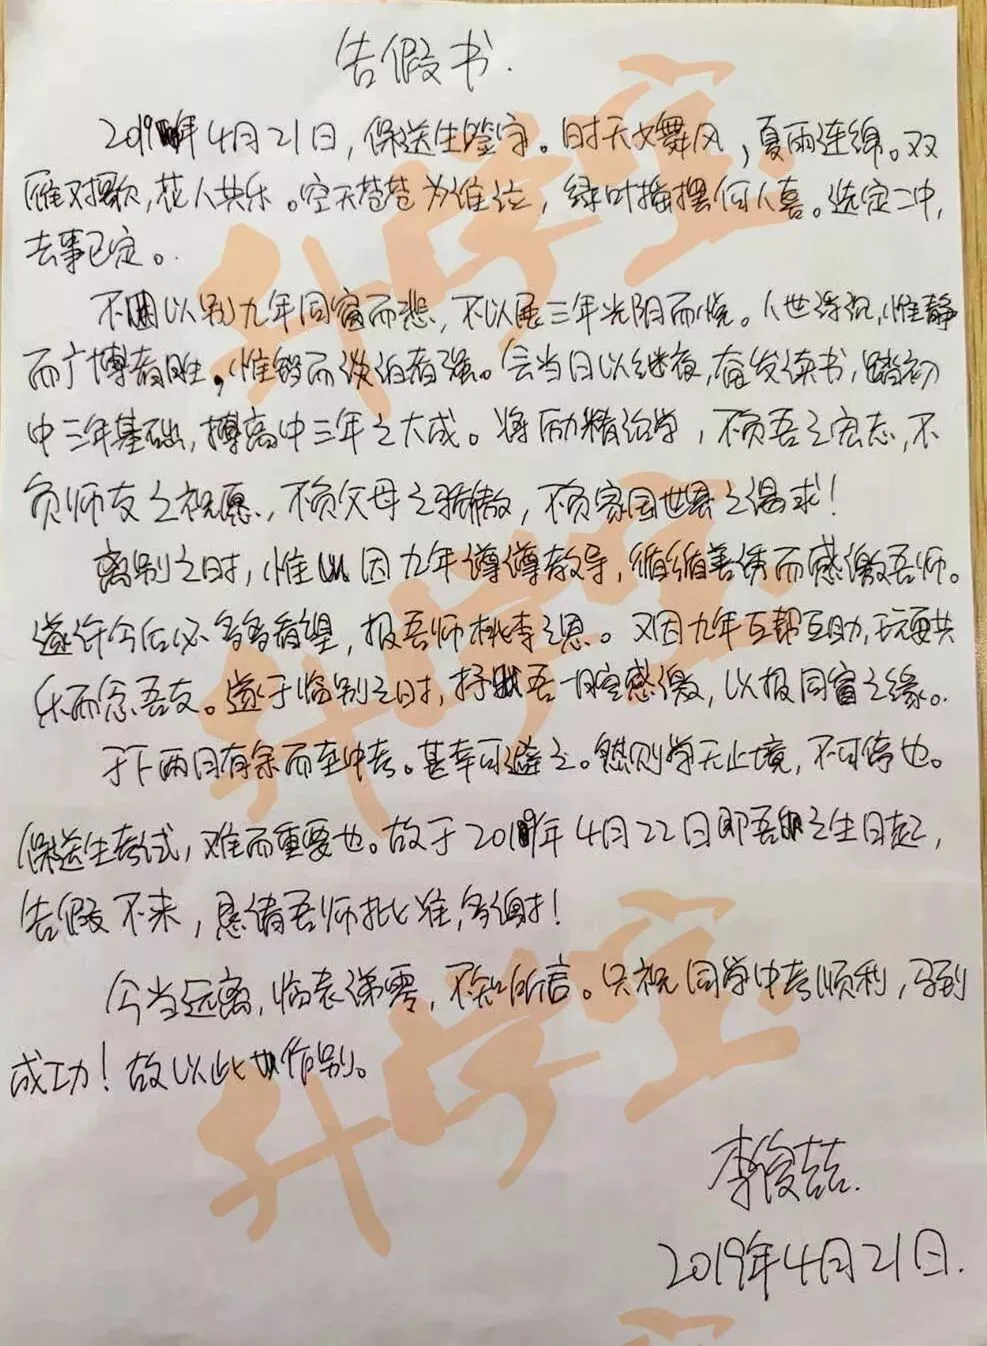 告假书.
2019年4月21日，保送生签字。时天文舞风，夏雨连绵。双
雁对歌，花人共乐。空天苍苍为谁泣，绿叶摇摆何人喜。选定二中，
去事已定。
不因以别九年同窗而悲，不以展三年光阴而悦。人世浮沉，惟静
而广博者胜，惟智而淡泊者强。会当日以继夜，奋发读书，踏初
中三年基础，搏高中三年之大成。将励精治学，不负吾之宏志，不
负师友之祝愿，不负父母之骄傲，不负家国世界之渴求！
离别之时，惟以因九年谆谆教导，循循善诱而感激吾师。
遂许今后必多多看望，报吾师桃李之恩。又因九年互帮互助，玩耍共
乐而念吾友。遂于临别之时，抒吾一腔感激，以报同窗之缘。
于下两月有余而至中考。甚幸可避之。然则学无止境，不可停也。
保送生考试，难而重要也。故于2019年4月22日即吾之生日起，
告假不来，恳请吾师批准，多谢！
今当远离，临表涕零，不知所言。只祝同学中考顺利，马到
成功！故以此作别。
李俊喆.
2019年4月21日.
升学宝
升学宝
升学宝